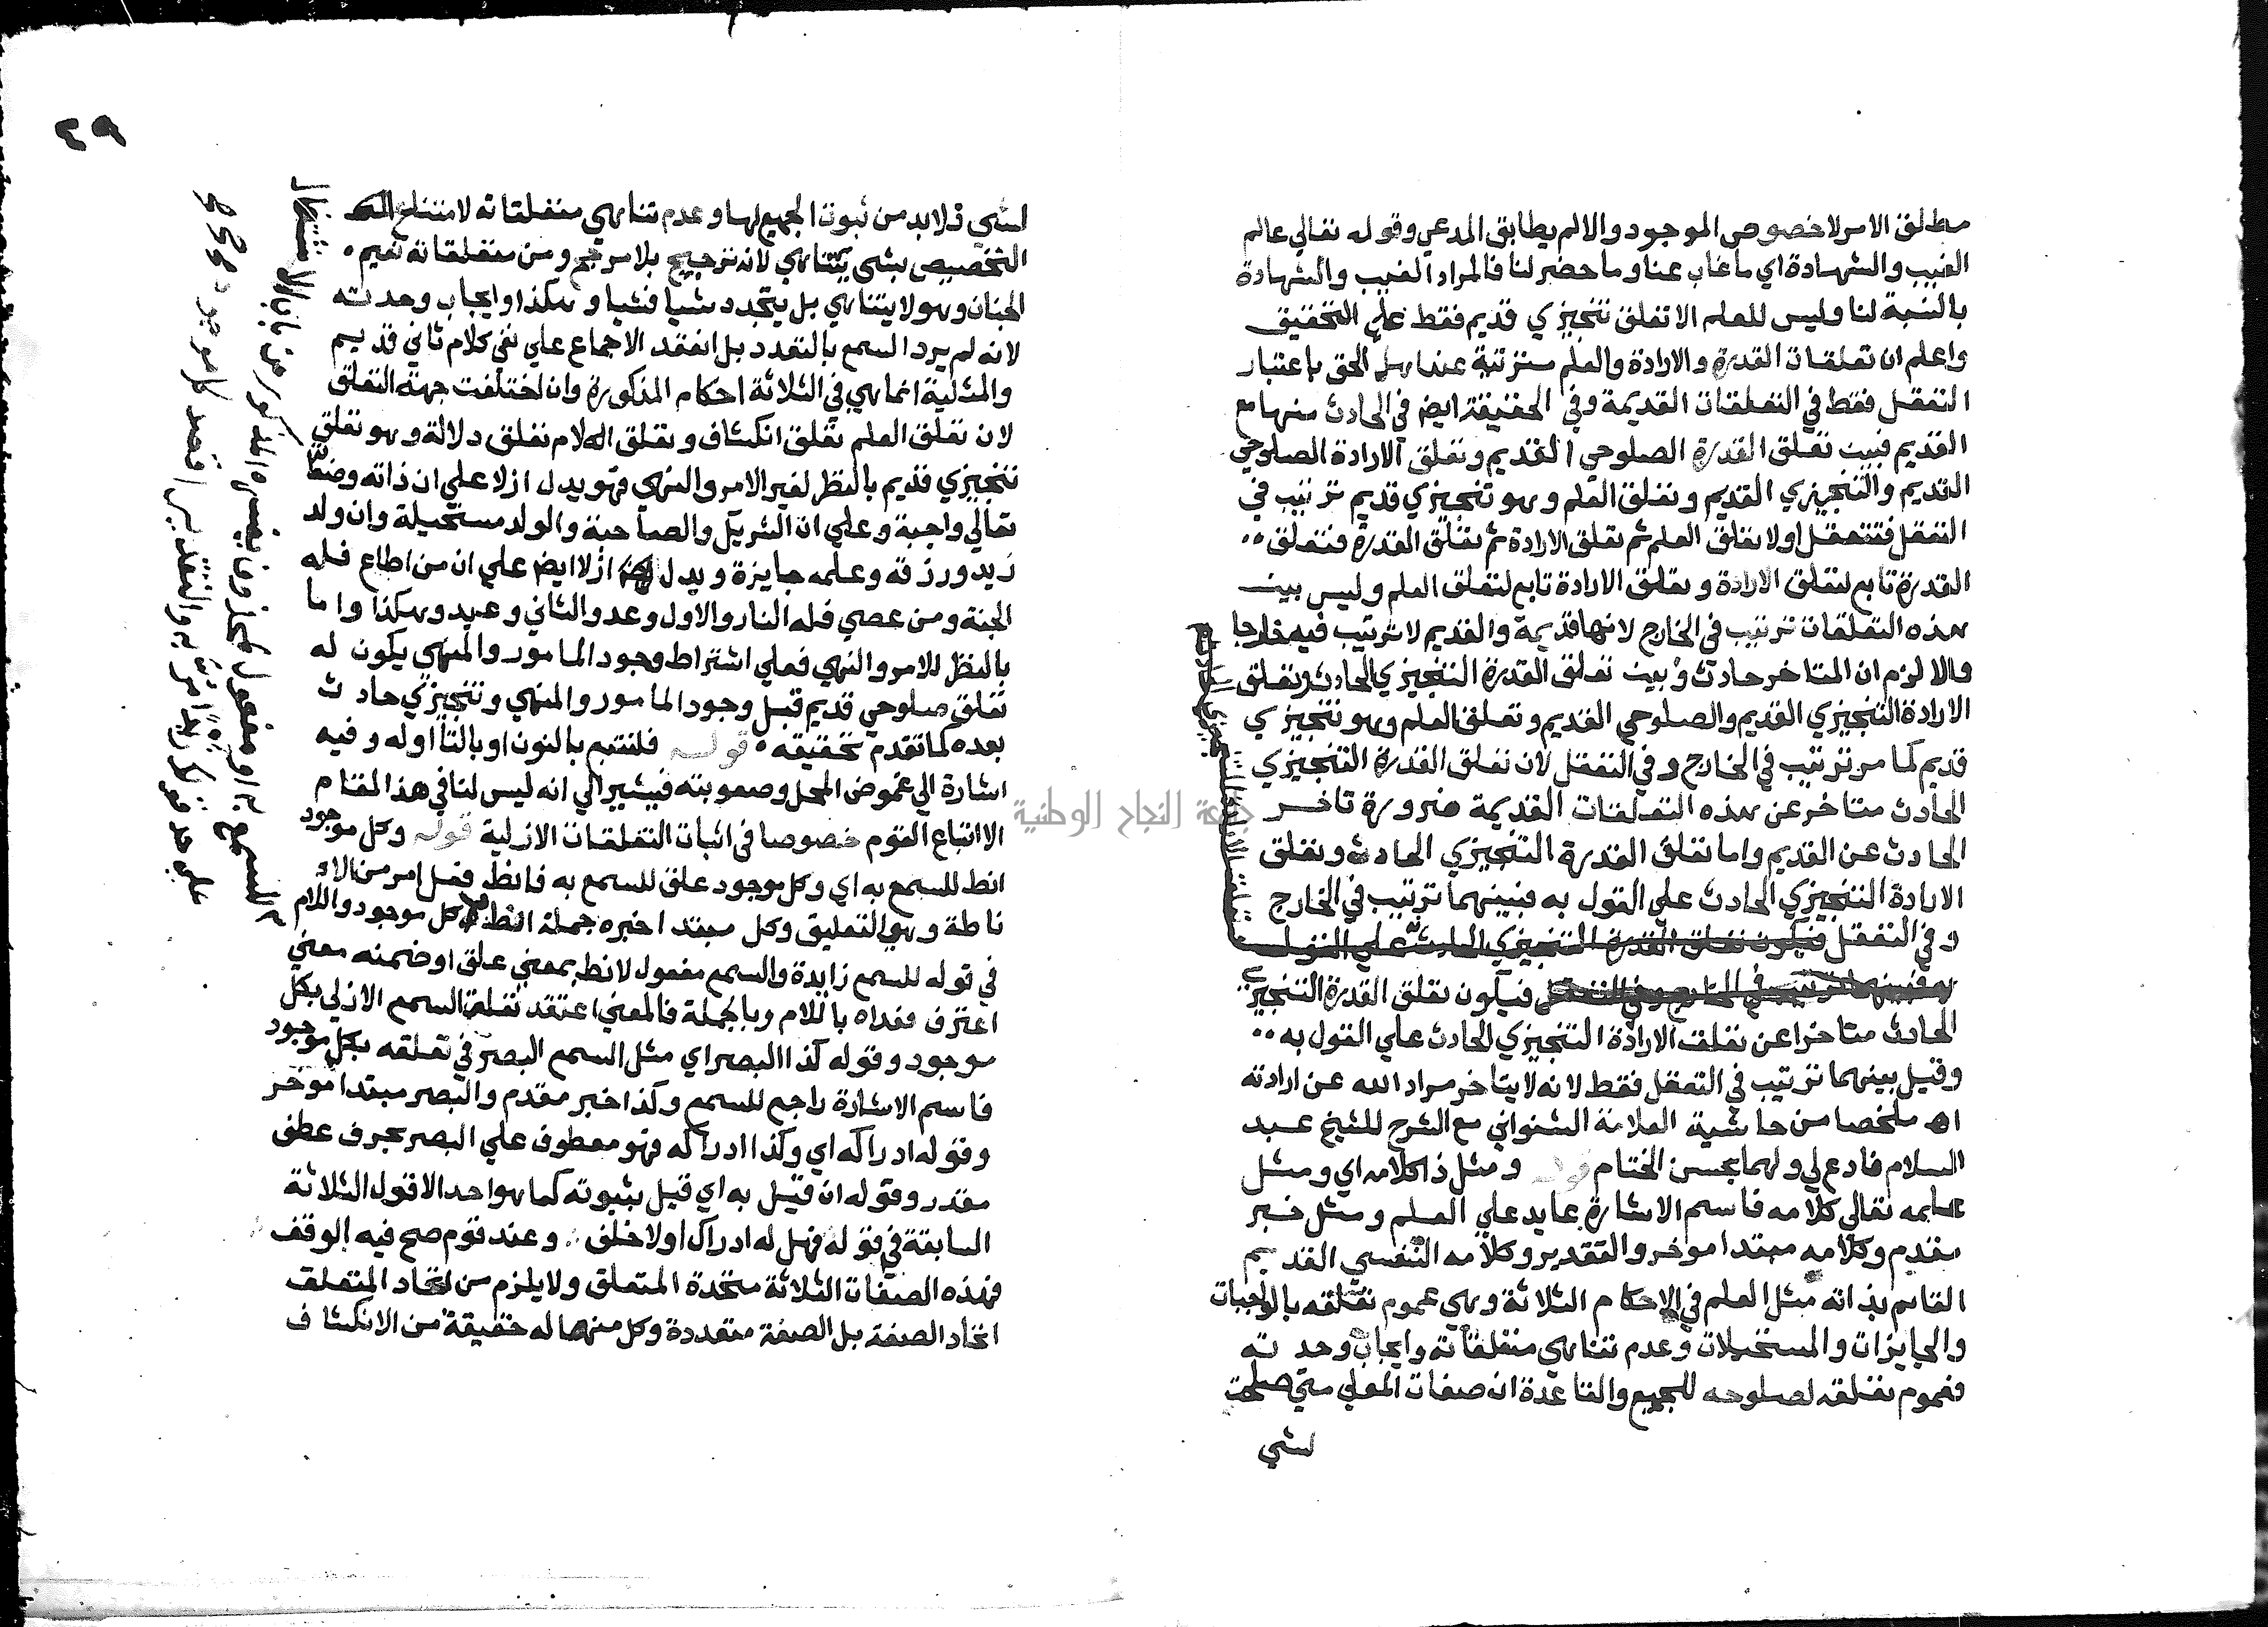 مطلق الامر لا خصوص الموجود والالم يطابق المدعي وقوله تعالي عالم
الغيب والشهادة اي ما غاب عنا وما حضر لنا فالمراد الغيب والشهادة
بالنسبة لنا وليس للعلم الا تعلق تنجيزي قديم فقط علي التحقيق
واعلم ان تعلقات القدرة والارادة والعلم مترتبة عند اهل الحق باعتبار
التعقل فقط في التعلقات القديمة وفي الحقيقة ايض في الحادث منها مع
القديم فبين تعلق القدرة الصلوحي القديم وتعلق الارادة الصلوحي
القديم والتنجيزي القديم وتعلق العلم وهو تنجيزي قديم ترتيب في
التعقل فتتعقل اولا تعلق العلم ثم تعلق الارادة ثم تعلق القدرة فتعلق
القدرة تابع لتعلق الارادة وتعلق الارادة تابع لتعلق العلم وليس بين
هذه التعلقات ترتيب في الخارج لانها قديمة والقديم لا ترتيب فيه خارجا
والا لزم ان المتاخر حادث وبين تعلق القدرة التنجيزي الحادث وتعلق
الارادة التنجيزي القديم والصلوحي القديم وتعلق العلم وهو تنجيزي
قديم كما مر ترتيب في الخارج وفي التعقل لان تعلق القدرة التنجيزي
الحادث متاخر عن هذه التعلقات القديمة ضرورة تاخر
الحادث عن القديم واما تعلق القدرة التنجيزي الحادث وتعلق
الارادة التنجيزي الحادث علي القول به فبينهما ترتيب في الخارج
وفي التعقل فيكون تعلق القدرة التنجيزي الحادث علي القول
به فبينهما ترتيب في الخارج وفي التعقل فيكون تعلق القدرة التنجيزي
الحادث متاخرا عن تعلق الارادة التنجيزي الحادث علي القول به
وقيل بينهما ترتيب في التعقل فقط لانه لا يتاخر مراد الله عن ارادته
اه ملخصا من حاشية العلامة الشنواني مع الشرح للشيخ عبد
السلام فادع لي ولهما بحسن الختام قوله ومثل ذا كلامه اي ومثل
علمه تعالي كلامه فاسم الاشارة عايد علي العلم ومثل خبر
مقدم وكلامه مبتدا موخر والتقدير وكلامه النفسي القديم
القائم بذاته مثل العلم في الاحكام الثلاثة وهي عموم تعلقه بالواجبات
والجايزات والمستحيلات وعدم تناهي متعلقاته وايجاب وحدته
فعموم تعلقه لصلوحه للجميع والقاعدة ان صفات المعاني متي صلحت
لشي
٢٩
لشي فلابد من ثبوت الجميع لها وعدم تناهي متعلقاته لامتناع
التخصيص بشي يتناهي لانه ترجيح بلا مرجح ومن متعلقاته نعيم
الجنان وهو لا يتناهي بل يتجدد شيا فشيا وهكذا وايجاب وحدته
لانه لم يرد السمع بالتعدد بل انعقد الاجماع علي نفي كلام ثاني قديم
والمثلية انما هي في الثلاثة احكام المذكورة وان اختلفت جهته التعلق
لان تعلق العلم تعلق انكشاف وتعلق الكلام تعلق دلالة وهو تعلق
تنجيزي قديم بالنظر لغير الامر والنهي فهو يدل ازلا علي ان ذاته وصفاته
تعالي واجبة وعلي ان الشريك والصاحبة والولد مستحيلة وان ولد
زيد ورزقه وعلمه جايزة ويدل ازلا ايض علي ان من اطاع فله
الجنة ومن عصي فله النار والاول وعد والثاني وعيد وهكذا واما
بالنظر للامر والنهي فعلي اشتراط وجود المامور والمنهي يكون له
تعلق صلوحي قديم قبل وجود المامور والمنهي وتنجيزي حادث
بعده كما تقدم تحقيقه قوله فلنتبع بالنون او بالتا اوله وفيه
اشارة الي غموض المحل وصعوبته فيشير الي انه ليس لنا في هذا المقام
الا اتباع القوم خصوصا في اثبات التعلقات الازلية قوله وكل موجود
انط للسمع به اي وكل موجود علق للسمع به فانظ فعل امر من الا
ناطة وهو التعليق وكل مبتدا خبره جملة انط كل موجود واللام
في قوله للسمع زايدة والسمع مفعول لانط بمعني علق او ضمنه معني
اعترف فعداه باللام وبالجملة فالمعني اعتقد تعلق السمع الازلي بكل
موجود وقوله كذا البصر اي مثل السمع البصر في تعلقه بكل موجود
فاسم الاشارة راجع للسمع وكذا خبر مقدم والبصر مبتدا موخر
وقوله ادراكه اي وكذا ادراكه فهو معطوف علي البصر بحرف عطف
مقدر وقوله ان قيل به اي قيل بثبوته كما هو احد الاقول الثلاثة
السابقة في قوله فهل له ادراك او لا خلف وعند قوم صح فيه الوقف
فهذه الصفات الثلاثة متحدة المتعلق ولا يلزم من اتحاد المتعلق
اتحاد الصفة بل الصفة متعددة وكل منها له حقيقة من الانكشاف
جامعة النجاح الوطنية